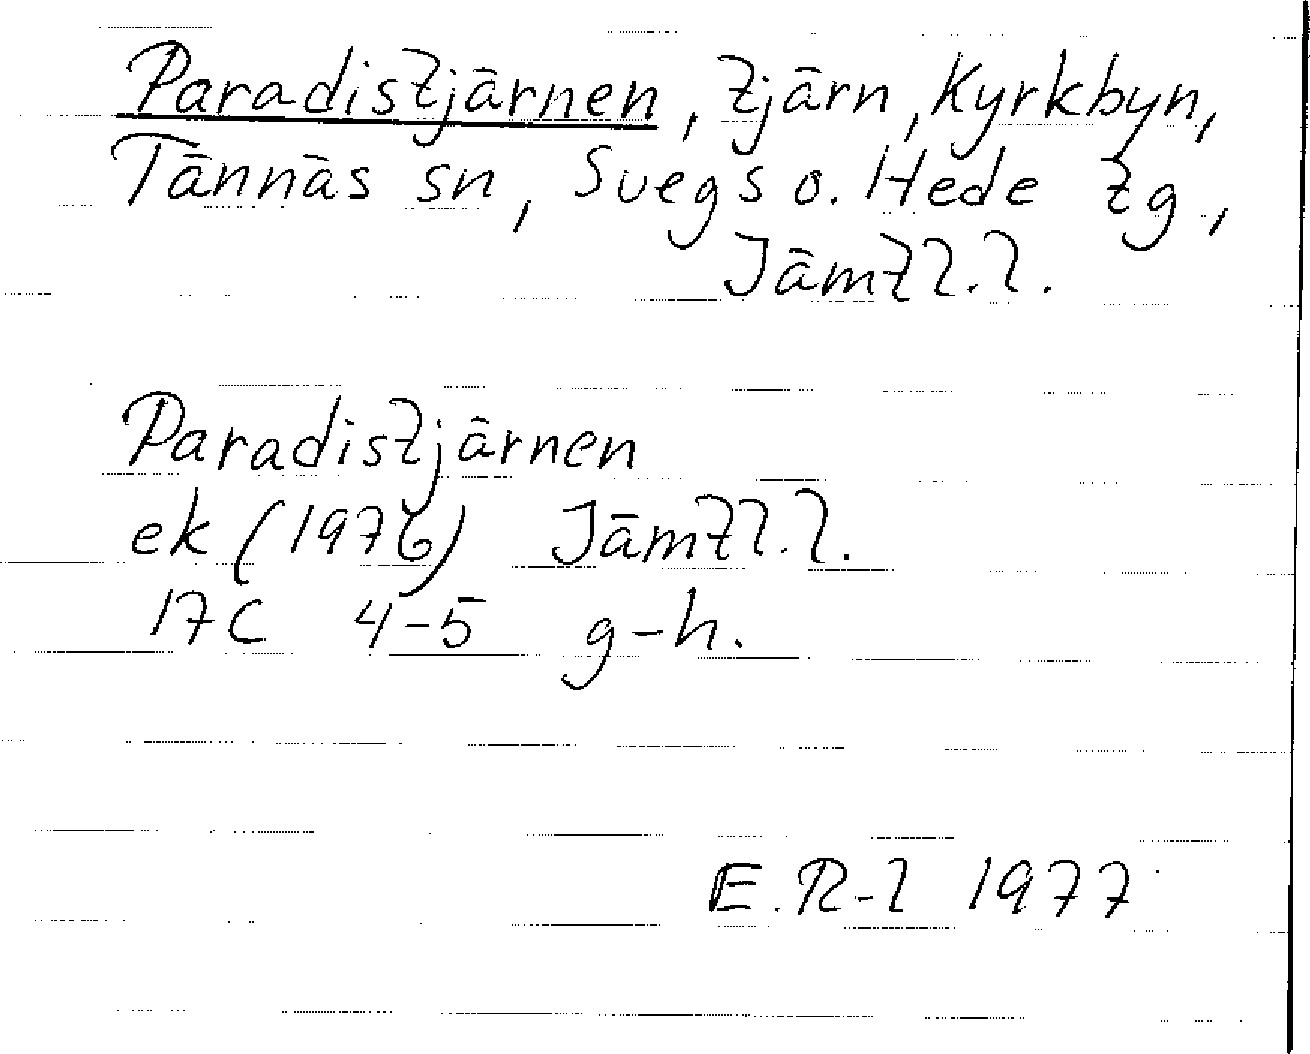 Paradistjärnen, tjärn, Kyrkbyn,
Tännäs sn, Svegs o. Hede tg,
Jämtl.l.
Paradistjärnen
ek (1976) Jämtl.l.
17C 4-5 g-h.
E.R-l 1977